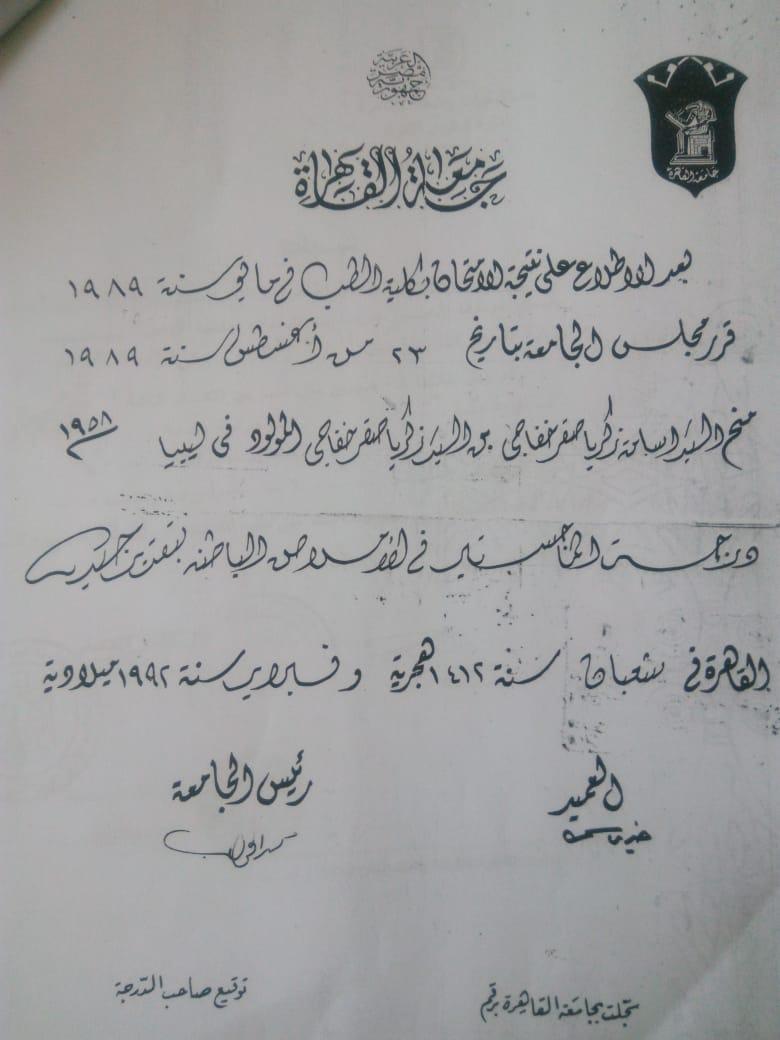 جمهورية مصر العربية
جامعة القاهرة
جامعة القاهرة
بعد الاطلاع على نتيجة الامتحان بكلية الطب في مايو سنة ١٩٨٩
قرر مجلس الجامعة بتاريخ ٢٣ من أغسطس سنة ١٩٨٩
منح السيد اسامة زكريا صقر خفاجى بن السيد زكريا صقر خفاجى المولود فى ليبيا ١٩٥٨
درجة الماجستير في الأمراض الباطنة بتقدير جيد
القاهرة في شعبان سنة ١٤١٢ هجرية وفبراير سنة ١٩٩٢ ميلادية
العميد
رئيس الجامعة
سجلت بجامعة القاهرة برقم
توقيع صاحب الدرجة